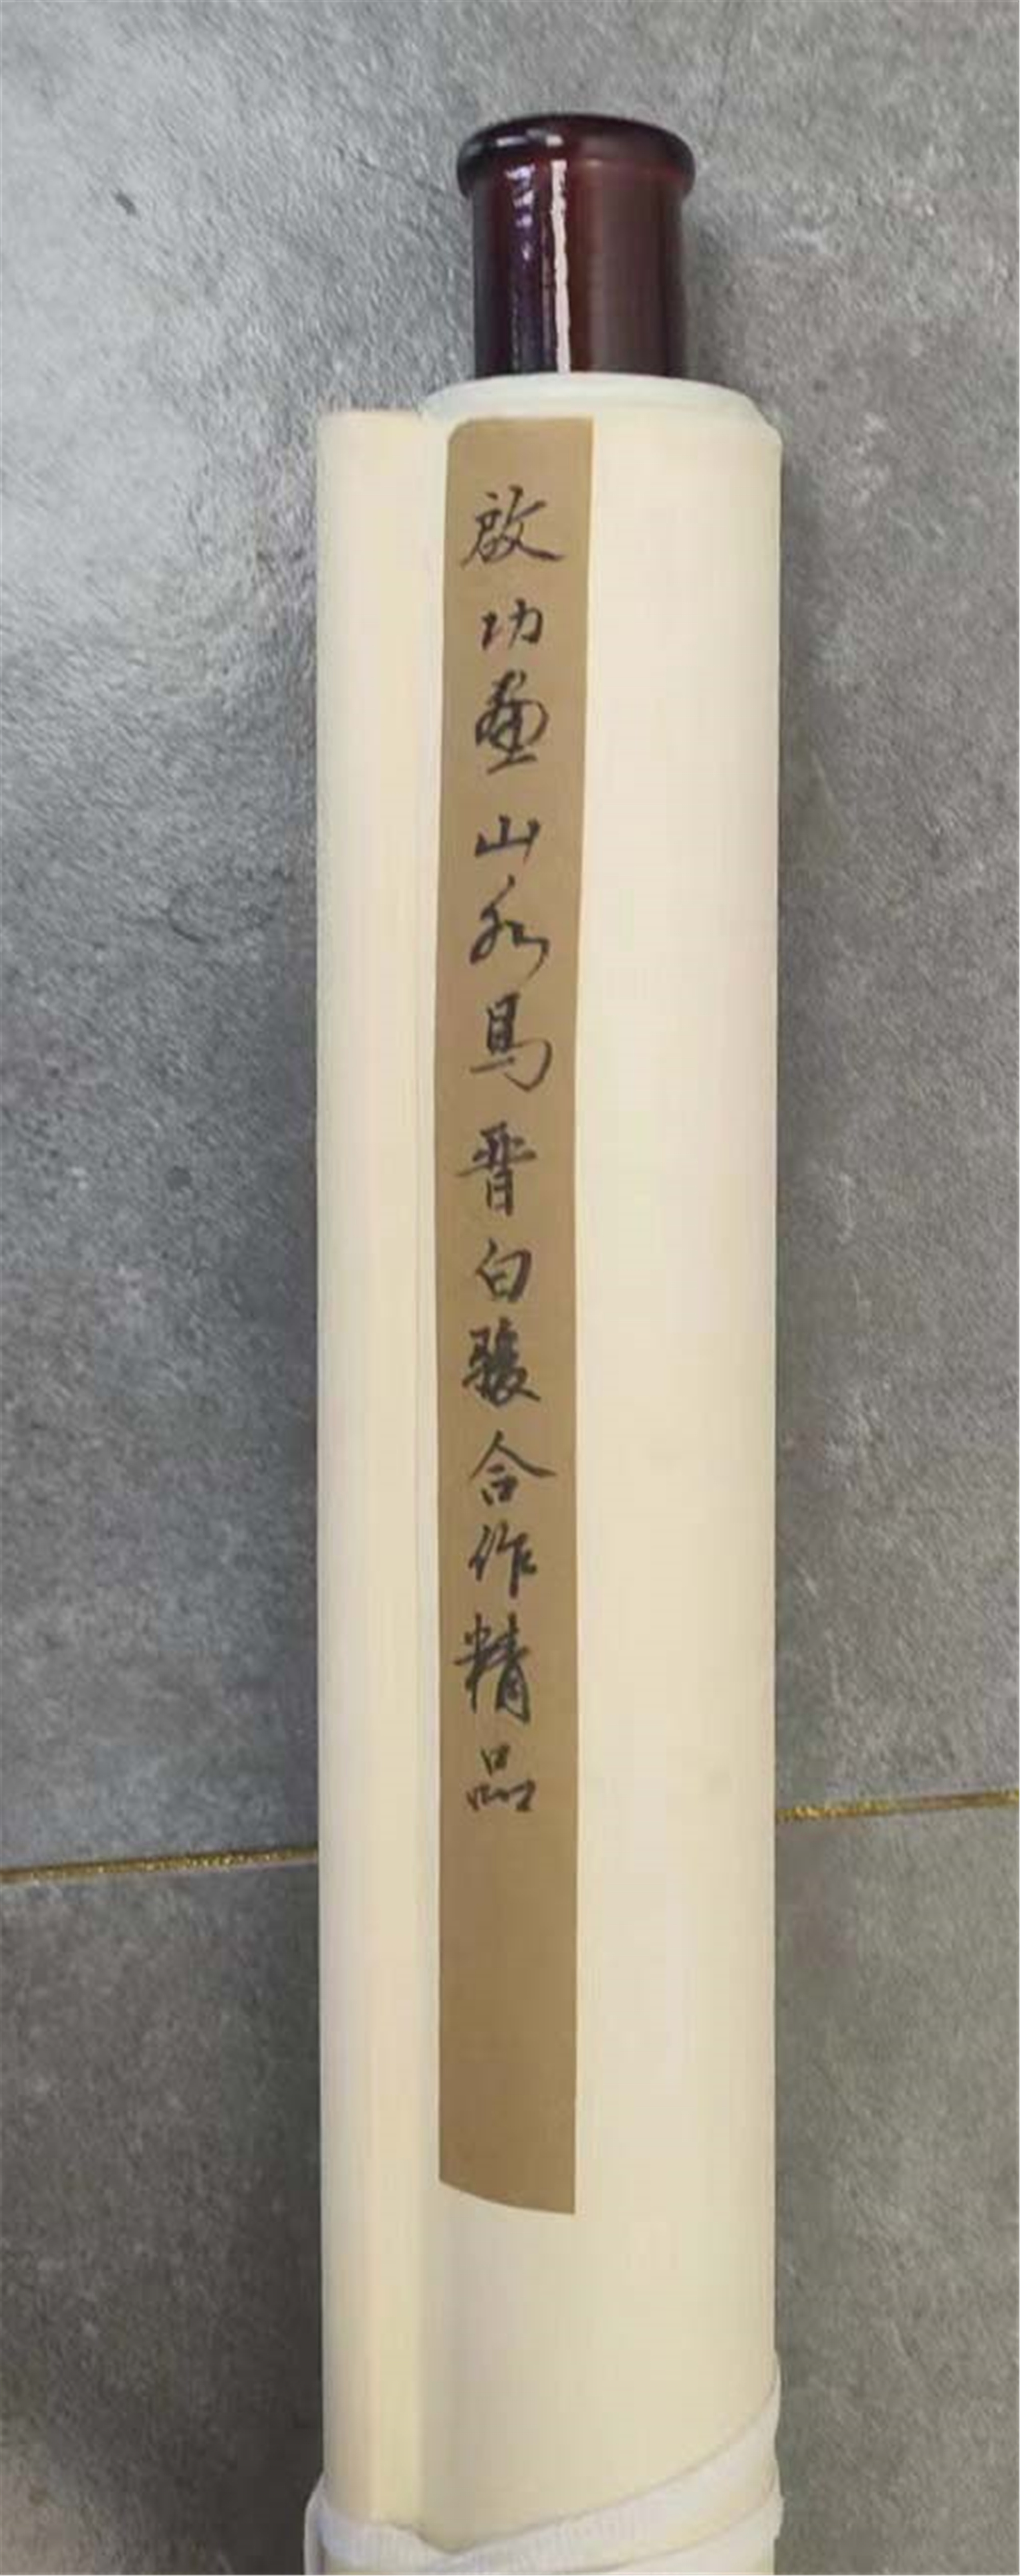 啟功畫山水馬晋白駿合作精品